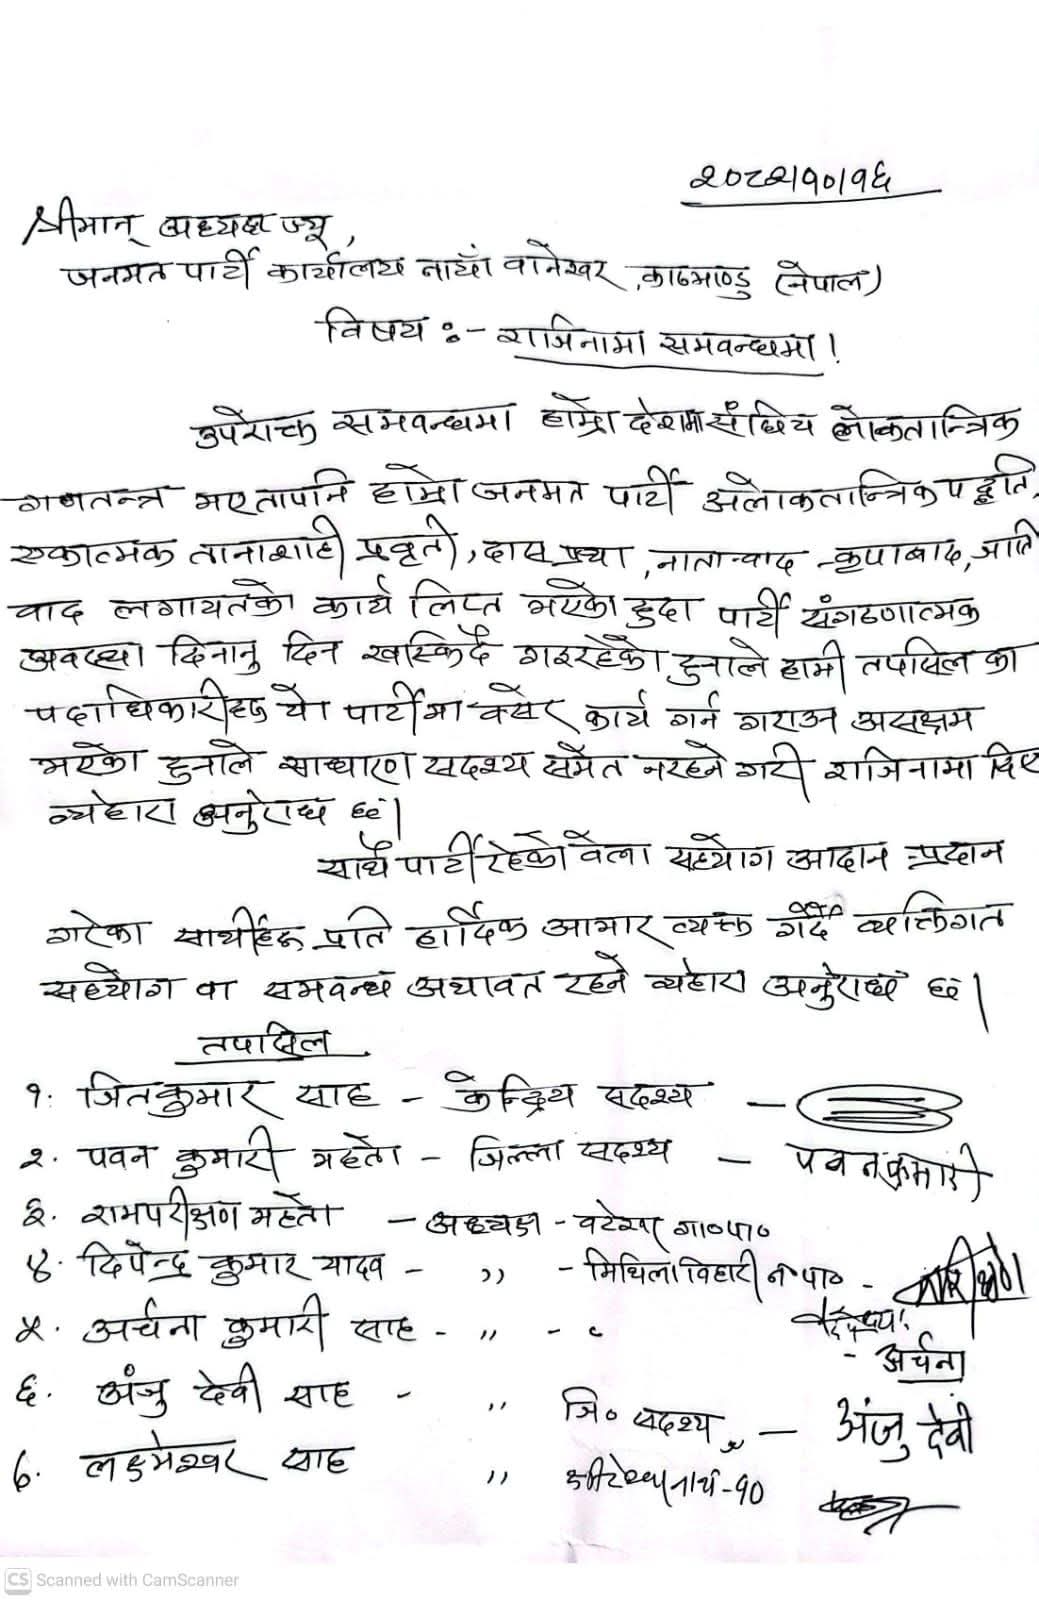 २०८२।१०।१६
श्रीमान् अध्यक्ष ज्यू,
जनमत पार्टी कार्यालय नायाँ वानेश्वर, काठमाण्डु (नेपाल)
विषय :- राजिनामा समवन्धमा।
उपरोक्त समवन्धमा हाम्रो देशमा संघिय लोकतान्त्रिक
गणतन्त्र भए तापनि हाम्रो जनमत पार्टी अलोकतान्त्रिक पद्धति,
एकात्मक तानाशाही प्रवृती, दास प्रथा, नाता-वाद - कृपाबाद, जाति
वाद लगायतको कार्य लिप्त भएको हुदा पार्टी संगठणात्मक
अवस्था दिनानु दिन खस्किदै गइरहेको हुनाले हामी तपसिल का
पदाधिकारीहरु यो पार्टीमा वसेर कार्य गर्न गराउन असक्षम
भएको हुनाले साधारण सदश्य समेत नरहने गरी राजिनामा दिए
व्यहोरा अनुरोध छ।
साथै पार्टी रहेको वेला सहयोग आदान प्रदान
गरेका साथीहरु प्रति हार्दिक आभार व्यक्त गर्दै व्यक्तिगत
सहयोग वा समवन्ध अथावत रहने व्यहोरा अनुरोध छ।
तपसिल
१. जितकुमार साह - केन्द्रिय सदश्य -
२. पवन कुमारी महतो - जिल्ला सदश्य - पवनकुमारी
३. रामपरीक्षण महतो - अध्यक्ष - वटेश्वर गा०पा०
४. दिपेन्द्र कुमार यादव - ,, - मिथिला विहारी न०पा० -
५. अर्चना कुमारी साह - ,, - - अर्चना
६. अंजु देवी साह - ,, जि० सदश्य - अंजु देवी
७. लक्ष्मेश्वर साह ,, -१०
CS Scanned with CamScanner